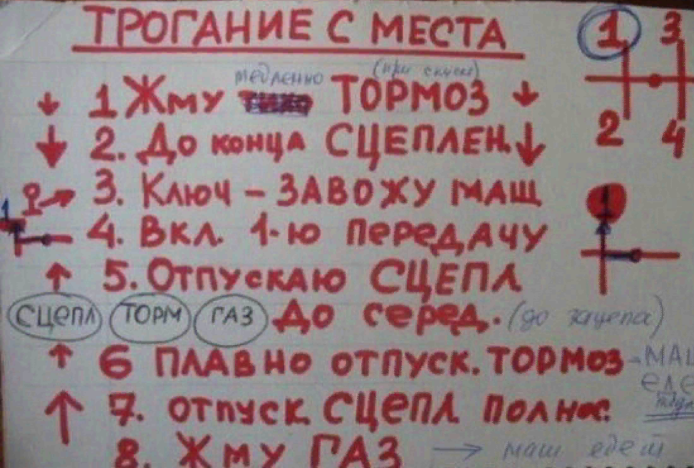 ТРОГАНИЕ С МЕСТА
медленно (при спуске)
1 Жму ТОРМОЗ
2. До конца СЦЕПЛЕН.
3. Ключ – ЗАВОЖУ МАШ
4. ВКЛ. 1-ю ПЕРЕДАЧУ
5. ОТПУСКАЮ СЦЕПЛ
СЦЕПЛ ТОРМ ГАЗ До серед. (до зацепа)
6 ПЛАВНО ОТПУСК. ТОРМОЗ - МАШ
ЕДЕ
7. ОТПУСК СЦЕПЛ ПОЛНОС
8. ЖМУ ГАЗ → маш едет
1 3
2 4
1
1